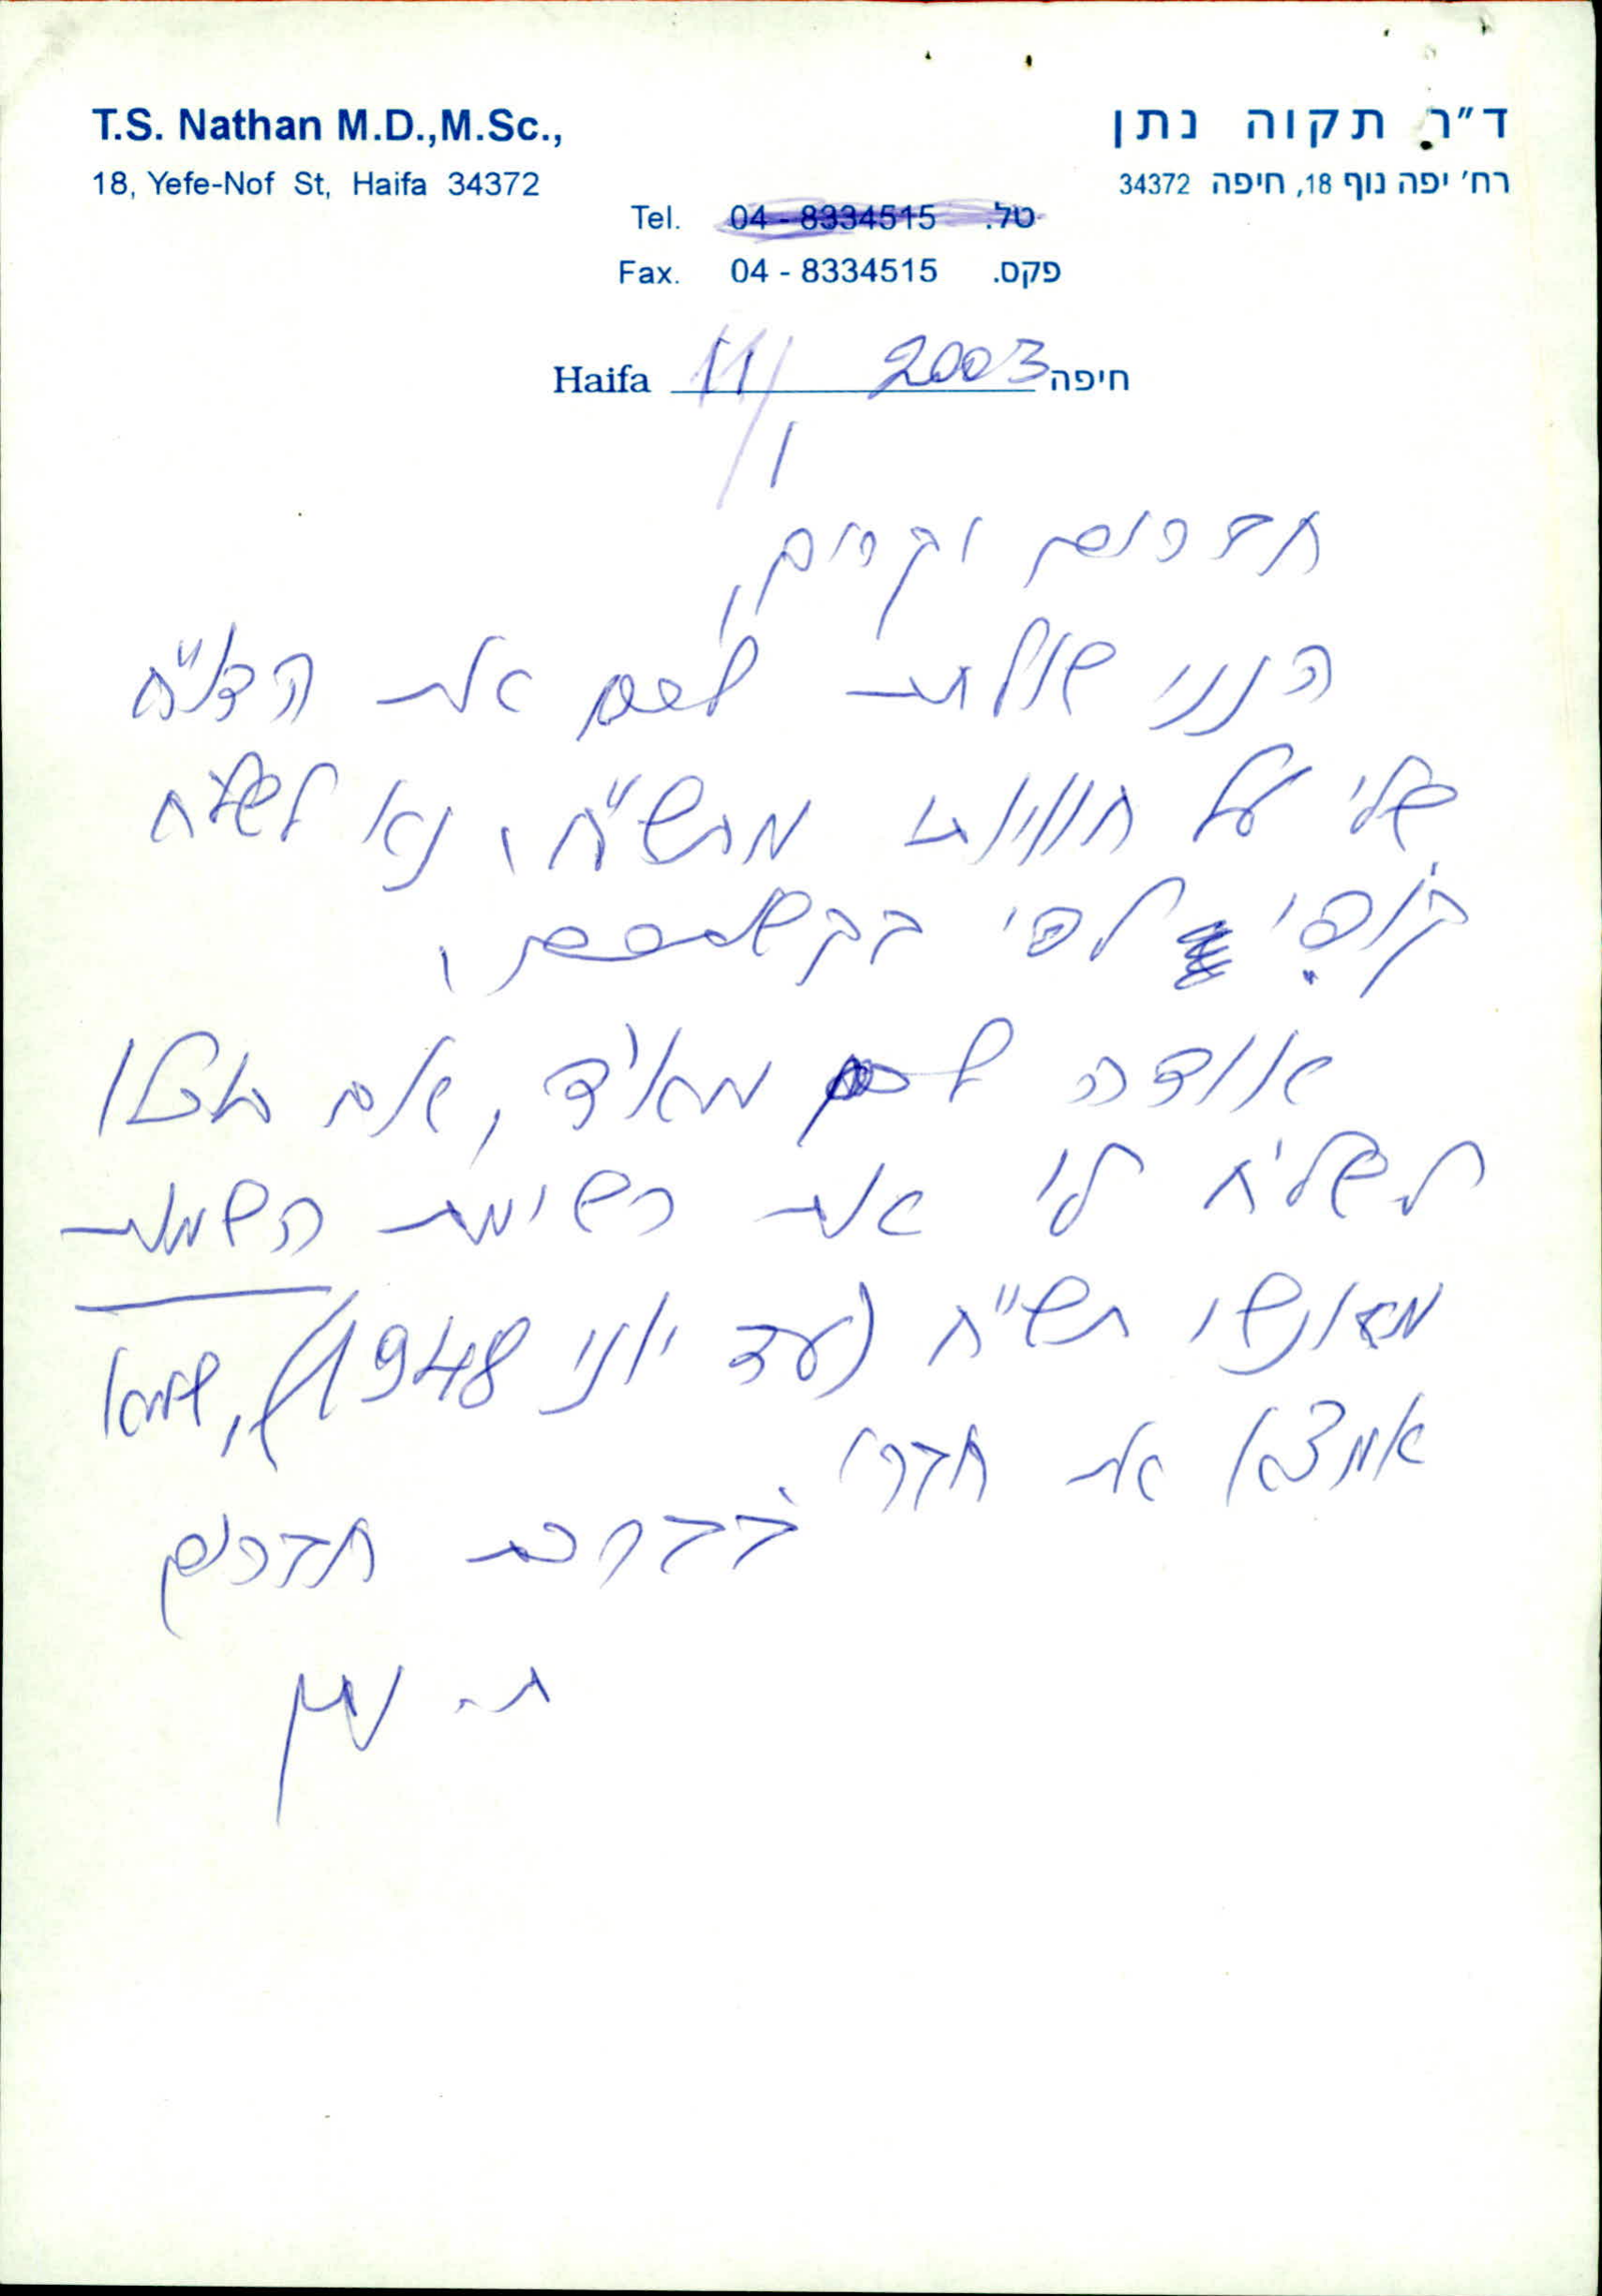 T.S. Nathan M.D.,M.Sc.,
ד"ר תקוה נתן
18, Yefe-Nof St, Haifa 34372
רח' יפה נוף 18, חיפה 34372
Tel. 04 - 8334515 טל.
Fax. 04 - 8334515 פקס.
Haifa 11/1 2003 חיפה
חברים יקרים,
הנני שולחת לכם את הדו"ח
שלי על חוויות מתש"ח. נא לשלוח
קופי לפי בקשתכם.
אודה לכם מאד, אם תוכלו
לשלוח לי את רשימת השמות
מאנשי תש"ח (עד יוני 1948),
אמצא את חברי
בברכת חברים
ת. נתן